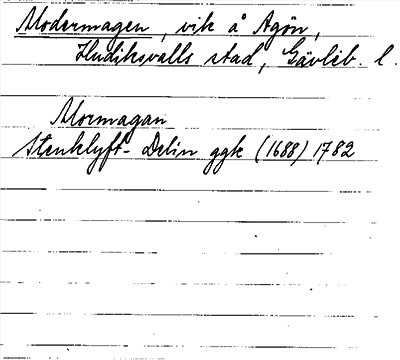 Modermagen, vik å Agön,
Hudiksvalls stad, Gävleb. l.
Mormagan
Stenklyft- Delin ggk (1688) 1782